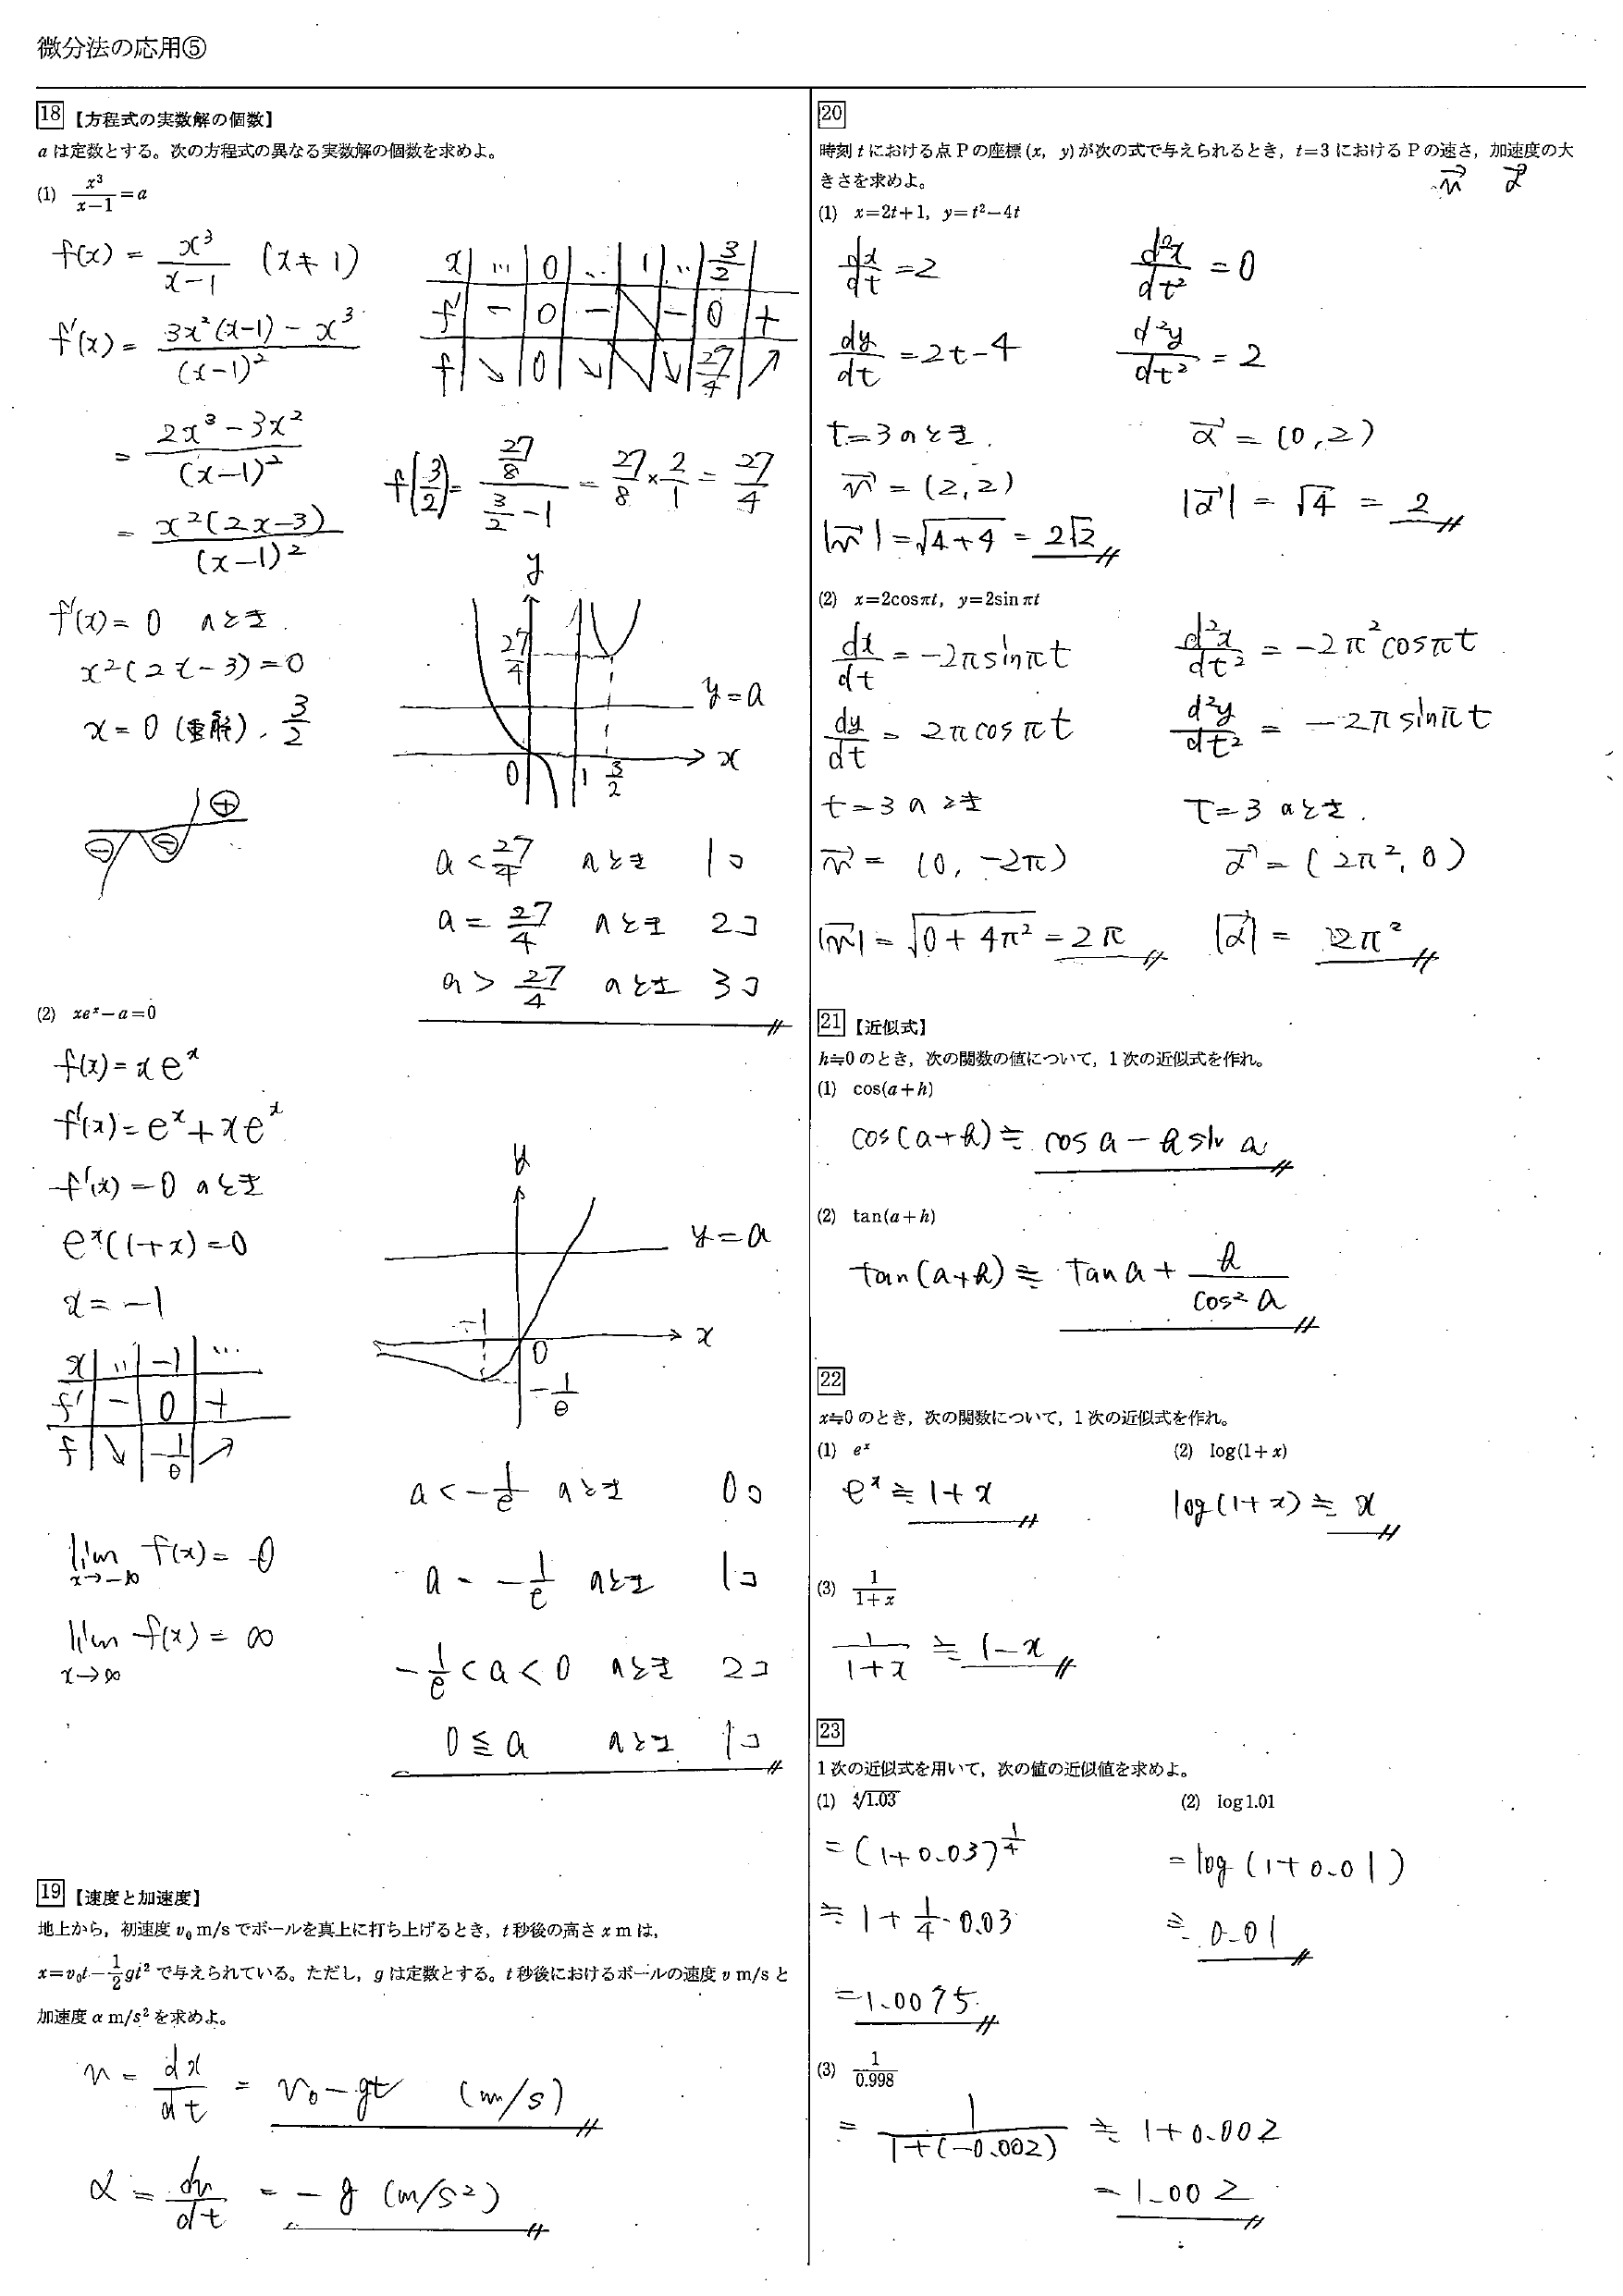 微分法の応用⑤
18 【方程式の実数解の個数】
aは定数とする。次の方程式の異なる実数解の個数を求めよ。
(1) x³/(x−1)=a
f(x) = x³/(x−1) (x≠1)
f'(x) = (3x²(x−1) − x³)/(x−1)²
= (2x³−3x²)/(x−1)²
= x²(2x−3)/(x−1)²
f'(x) = 0 のとき.
x²(2x−3)=0
x=0 (重解), 3/2
⊖ ⊖ ⊕
x | … | 0 | … | 1 | … | 3/2 |
f' | − | 0 | − | \ | − | 0 | +
f | ↘ | 0 | ↘ | \ | ↘ | 27/4 | ↗
f(3/2) = (27/8)/(3/2 −1) = 27/8 × 2/1 = 27/4
y
27/4
y=a
0 1 3/2 x
a < 27/4 のとき 1コ
a = 27/4 のとき 2コ
a > 27/4 のとき 3コ
(2) xeˣ−a=0
f(x)=xeˣ
f'(x)=eˣ+xeˣ
f'(x)=0 のとき
eˣ(1+x)=0
x=−1
x | … | −1 | …
f' | − | 0 | +
f | ↘ | −1/e | ↗
lim x→−∞ f(x)= −0
lim x→∞ f(x)= ∞
y
y=a
−1 0 x
−1/e
a<−1/e のとき 0コ
a = −1/e のとき 1コ
−1/e<a<0 のとき 2コ
0≦a のとき 1コ
19 【速度と加速度】
地上から，初速度 v₀ m/s でボールを真上に打ち上げるとき，t 秒後の高さ x m は，
x=v₀t−1/2gt² で与えられている。ただし，g は定数とする。t 秒後におけるボールの速度 v m/s と
加速度 α m/s² を求めよ。
v = dx/dt = v₀−gt (m/s)
α = dv/dt = −g (m/s²)
20
時刻 t における点 P の座標 (x, y) が次の式で与えられるとき，t=3 における P の速さ，加速度の大
きさを求めよ。
v⃗ α⃗
(1) x=2t+1, y=t²−4t
dx/dt =2 d²x/dt² =0
dy/dt =2t−4 d²y/dt² = 2
t=3のとき.
v⃗ = (2,2) α⃗ = (0,2)
|v⃗| = √(4+4) = 2√2 |α⃗| = √4 = 2
(2) x=2cosπt, y=2sinπt
dx/dt = −2πsinπt d²x/dt² = −2π²cosπt
dy/dt = 2πcosπt d²y/dt² = −2πsinπt
t=3のとき t=3のとき.
v⃗ = (0, −2π) α⃗ = (2π², 0)
|v⃗| = √(0+4π²) = 2π |α⃗| = 2π²
21 【近似式】
h≒0 のとき，次の関数の値について，1 次の近似式を作れ。
(1) cos(a+h)
cos(a+h) ≒ cos a − h sin a
(2) tan(a+h)
tan(a+h) ≒ tan a + h/cos²a
22
x≒0 のとき，次の関数について，1 次の近似式を作れ。
(1) eˣ (2) log(1+x)
eˣ ≒ 1+x log(1+x) ≒ x
(3) 1/(1+x)
1/(1+x) ≒ 1−x
23
1 次の近似式を用いて，次の値の近似値を求めよ。
(1) ∜1.03 (2) log1.01
= (1+0.03)^(1/4) = log(1+0.01)
≒ 1+1/4·0.03 ≒ 0.01
= 1.0075
(3) 1/0.998
= 1/(1+(−0.002)) ≒ 1+0.002
= 1.002